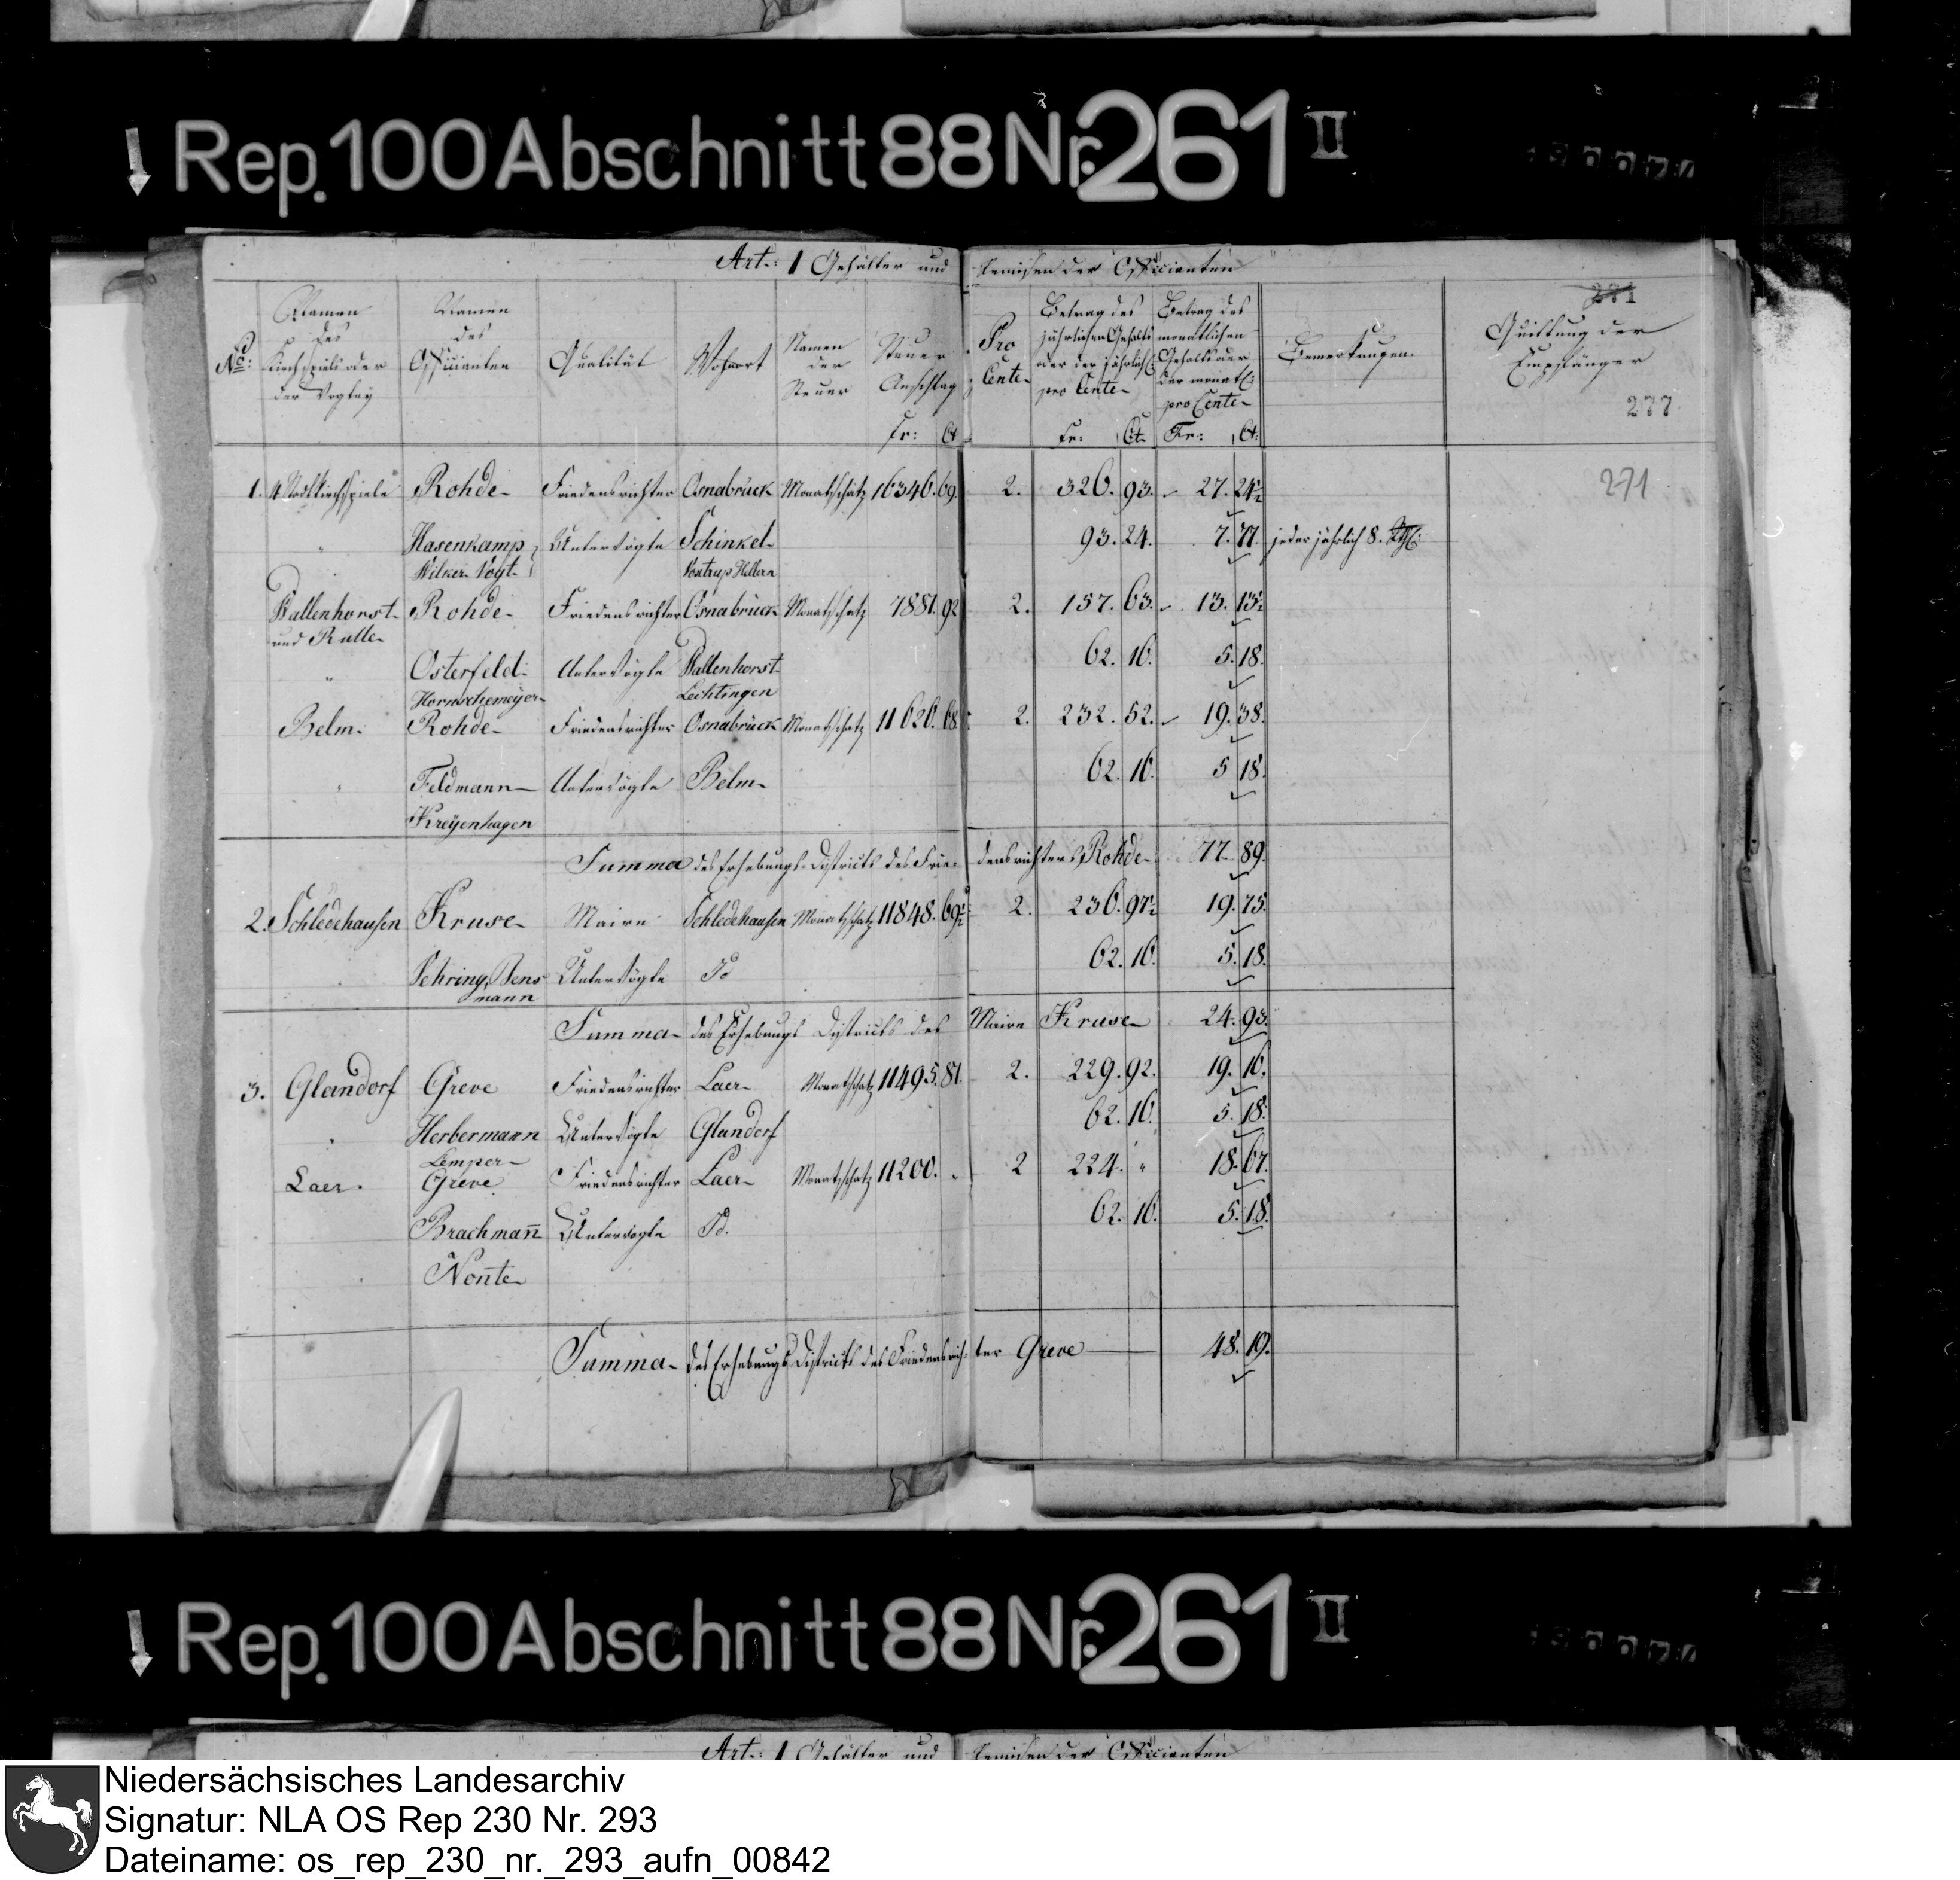 Rep. 100 Abschnitt 88 Nr. 261 II
Art. 1 Gehälter und Remisen der Officianten
271
No: Namen des Kirchspiels oder der Vogtey Namen des Officianten Qualität Wohnort Namen der Steuer Steuer Anschlag Fr: Ct Pro Cente Betrag des jährlichen Gehalts oder der jährlich: pro Cente Fr: Ct. Betrag des monatlichen Gehalts oder der monatl: pro Cente Fr: Ct: Bemerkungen. Quittung der Empfänger
277
271
1. 4 Stadtkirchspiele Rohde Friedensrichter Osnabrück Monatschatz 16346. 69. 2. 326. 93. 27. 24½
" Hasenkamp Untervögte Schinkel 93. 24. 7. 77. jeder jährlich 8.
Wilker Vogt Hellern
Wallenhorst Rohde Friedensrichter Osnabrück Monatschatz 7881. 92 2. 157. 63. 13. 13½
und Rulle
" Osterfeld Untervögte Wallenhorst 62. 16. 5. 18.
Lechtingen
Belm. Rohde Friedensrichter Osnabrück Monatschatz 11626. 68. 2. 232. 52. 19. 38.
" Feldmann Untervögte Belm 62. 16. 5 18.
Kreyenhagen
Summa des Erhebungs Districts des Friedensrichters Rohde 77. 89.
2. Schledehausen Kruse Maire Schledehausen Monatschatz 11848. 69½ 2. 236. 97½ 19. 75.
Bensmann Untervögte Id 62. 16. 5. 18.
Summa des Erhebungs Districts des Maire Kruse 24. 93.
3. Glandorf Greve Friedensrichter Laer Monatschatz 11495. 81. 2. 229. 92. 19. 16.
" Herbermann Untervögte Glandorf 62. 16. 5. 18.
Lemper
Laer. Greve Friedensrichter Laer Monatschatz 11200. " 2 224. " 18. 67.
Brachmañ Untervögte Id. 62. 16. 5. 18.
Nonte
Summa des Erhebungs Districts des Friedensrichter Greve 48. 19.
Rep. 100 Abschnitt 88 Nr. 261 II
Art. 1 Gehälter und Remisen der Officianten
Niedersächsisches Landesarchiv
Signatur: NLA OS Rep 230 Nr. 293
Dateiname: os_rep_230_nr._293_aufn_00842